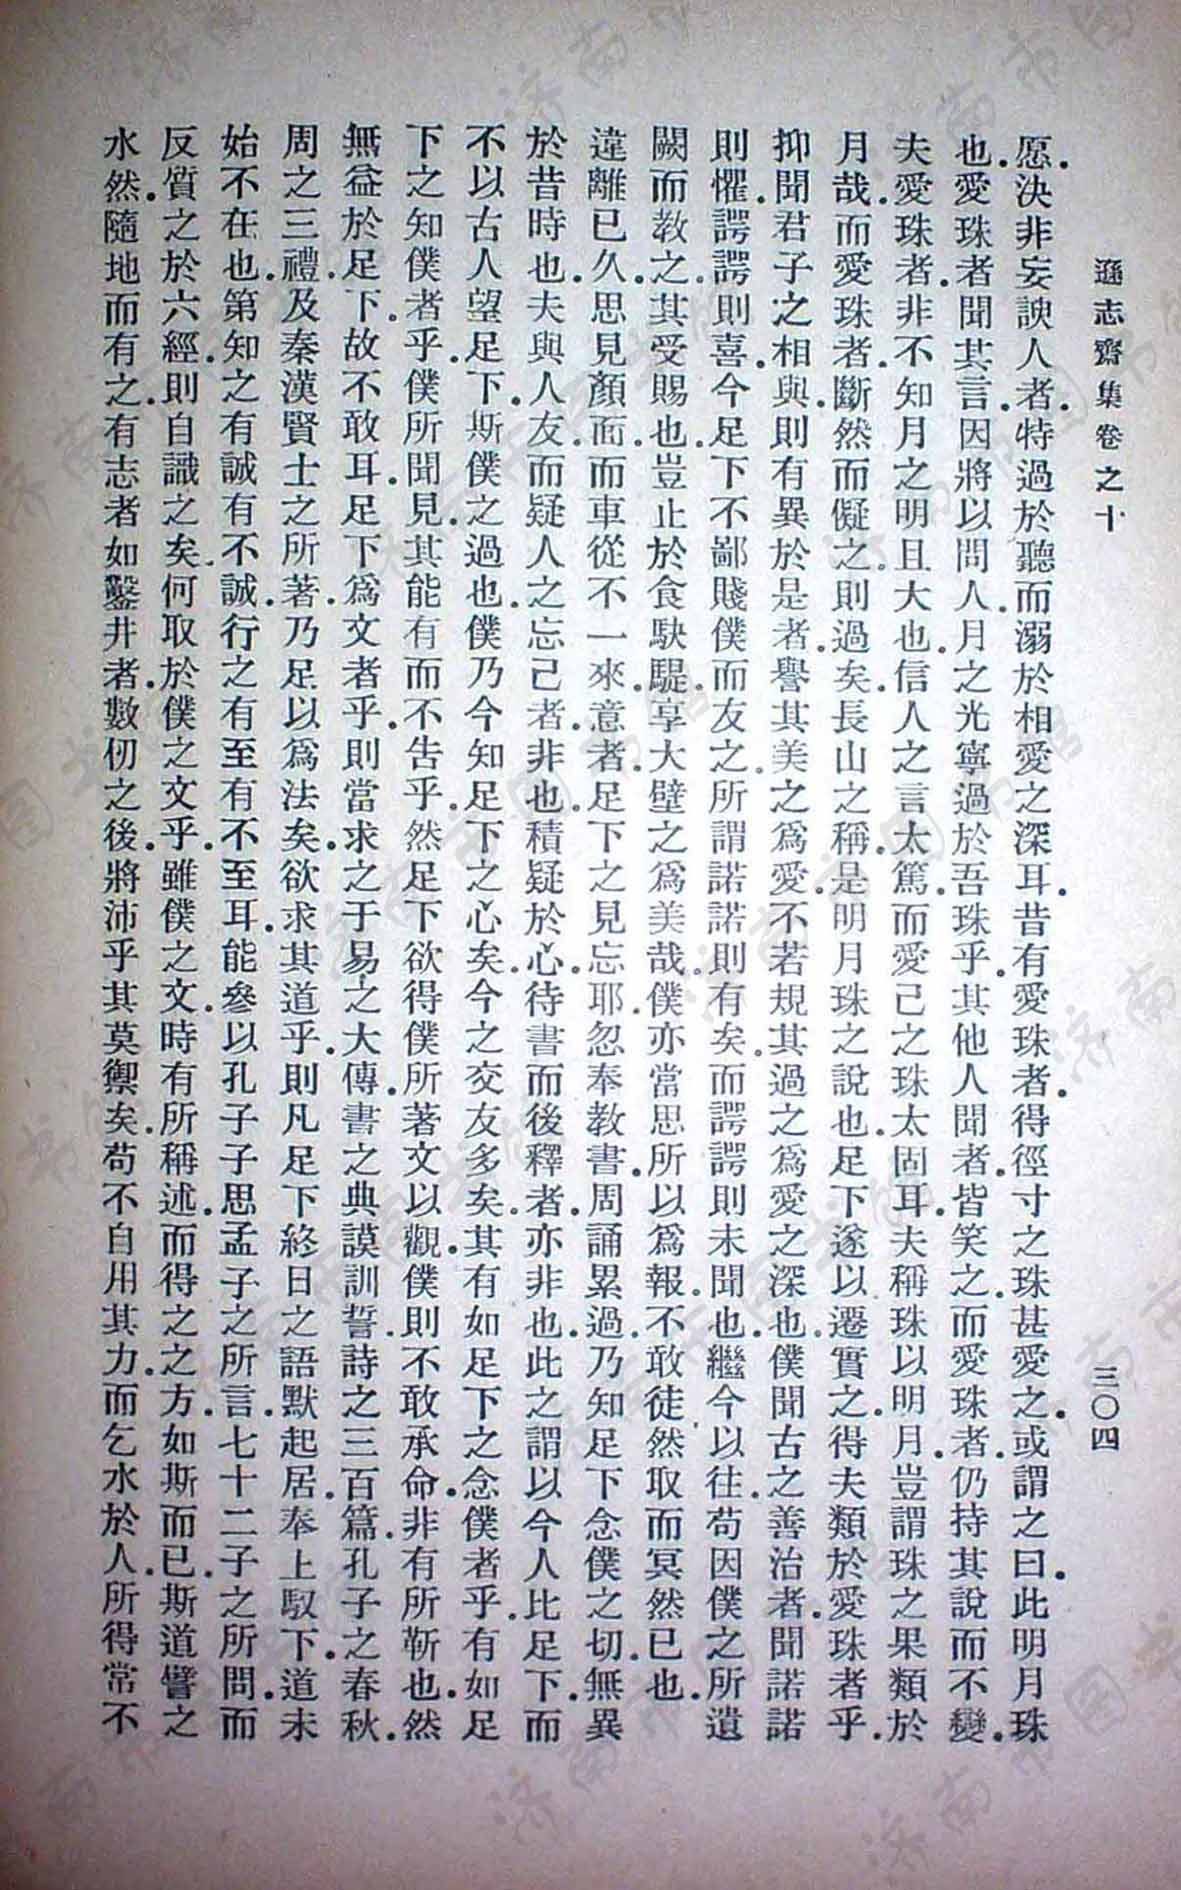 遜志齋集卷之十
三〇四
愿決非妄諛人者特過於聽而溺於相愛之深耳昔有愛珠者得徑寸之珠甚愛之或謂之曰此明月珠
也愛珠者聞其言因將以問人月之光寧過於吾珠乎其他人聞者皆笑之而愛珠者仍持其說而不變
夫愛珠者非不知月之明且大也信人之言太篤而愛己之珠太固耳夫稱珠以明月豈謂珠之果類於
月哉而愛珠者斷然而儗之則過矣長山之稱是明月珠之說也足下遂以遷實之得夫類於愛珠者乎
抑聞君子之相與則有異於是者譽其美之爲愛不若規其過之爲愛之深也僕聞古之善治者聞諾諾
則懼諤諤則喜今足下不鄙賤僕而友之所謂諾諾則有矣而諤諤則未聞也繼今以往苟因僕之所遺
闕而教之其受賜也豈止於食駃騠享大壁之爲美哉僕亦當思所以爲報不敢徒然取而冥然已也
違離已久思見顏面而車從不一來意者足下之見忘耶忽奉教書周誦累過乃知足下念僕之切無異
於昔時也夫與人友而疑人之忘己者非也積疑於心待書而後釋者亦非也此之謂以今人比足下而
不以古人望足下斯僕之過也僕乃今知足下之心矣今之交友多矣其有如足下之念僕者乎有如足
下之知僕者乎僕所聞見其能有而不告乎然足下欲得僕所著文以觀僕則不敢承命非有所靳也然
無益於足下故不敢耳足下爲文者乎則當求之于易之大傳書之典謨訓誓詩之三百篇孔子之春秋
周之三禮及秦漢賢士之所著乃足以爲法矣欲求其道乎則凡足下終日之語默起居奉上馭下道未
始不在也第知之有誠有不誠行之有至有不至耳能參以孔子子思孟子之所言七十二子之所問而
反質之於六經則自識之矣何取於僕之文乎雖僕之文時有所稱述而得之之方如斯而已斯道譬之
水然隨地而有之有志者如鑿井者數仞之後將沛乎其莫禦矣苟不自用其力而乞水於人所得常不